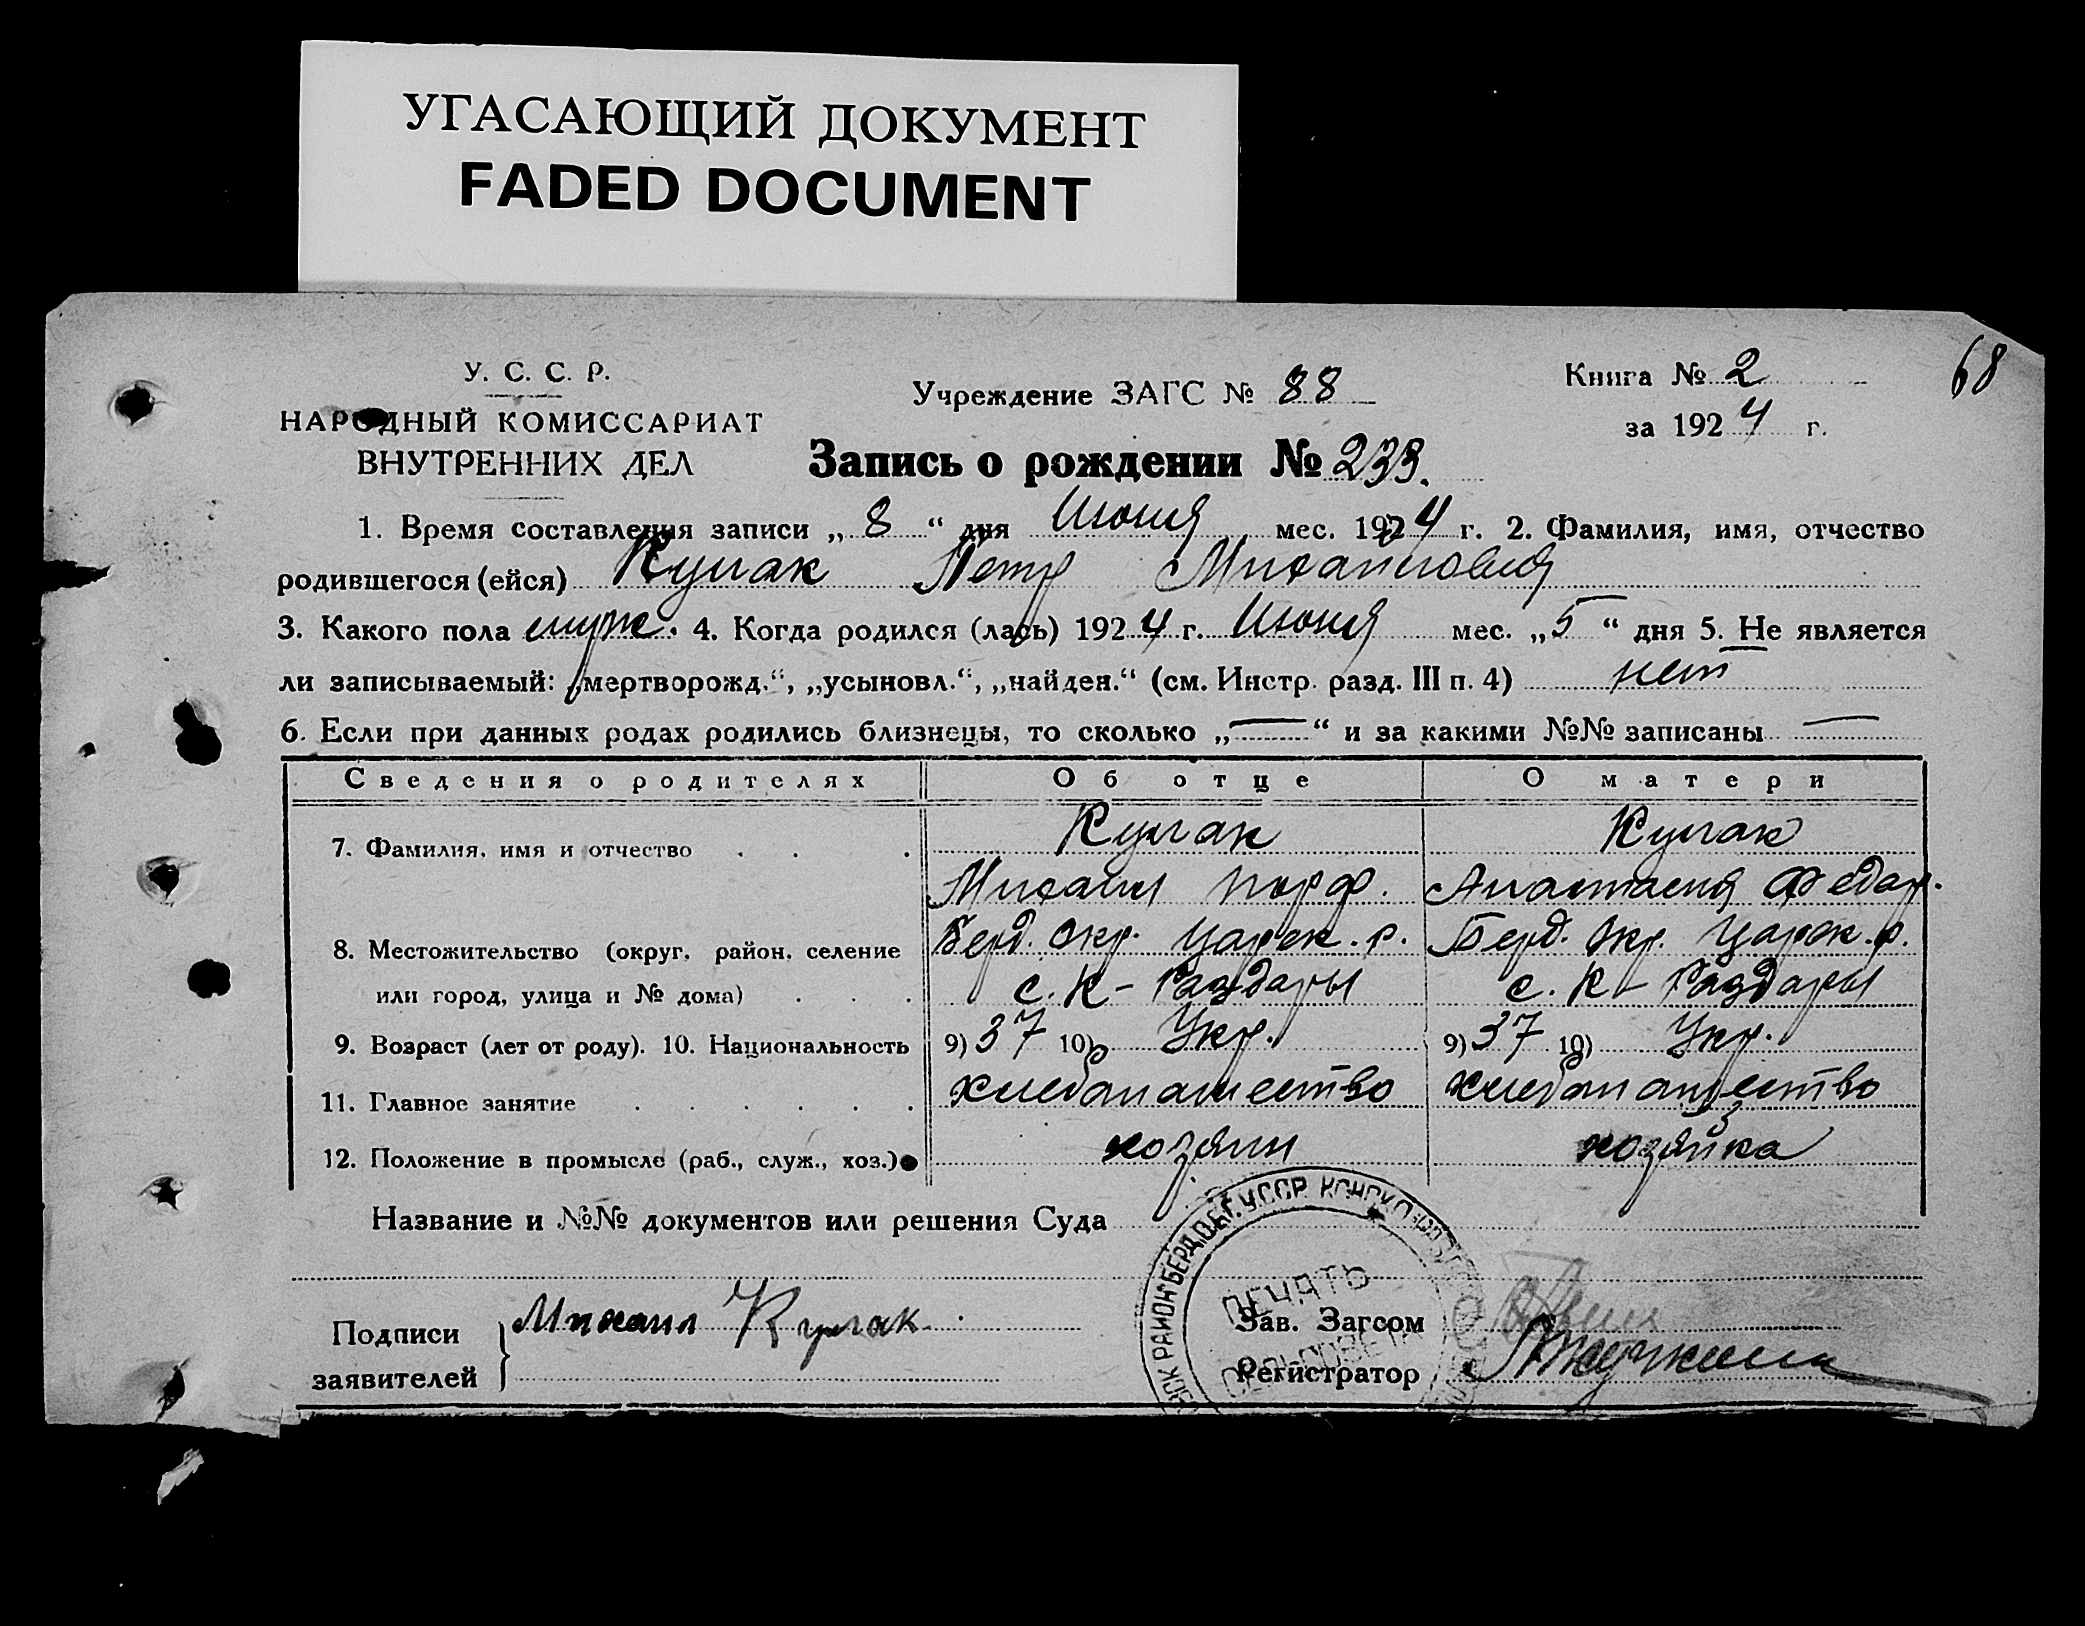 УГАСАЮЩИЙ ДОКУМЕНТ
FADED DOCUMENT
68
У. С. С. Р.
НАРОДНЫЙ КОМИССАРИАТ
ВНУТРЕННИХ ДЕЛ
Учреждение ЗАГС № 88
Книга № 2
за 1924 г.
Запись о рождении № 233.
1. Время составления записи „ 8 “ дня Июня мес. 1924 г. 2. Фамилия, имя, отчество
родившегося (ейся) Кулак Петр Михайлович
3. Какого пола муж. 4. Когда родился (лась) 1924 г. Июня мес. „ 5 “ дня 5. Не является
ли записываемый: „мертворожд.“, „усыновл.“, „найден.“ (см. Инстр. разд. III п. 4) нет
6. Если при данных родах родились близнецы, то сколько „—“ и за какими №№ записаны —
Сведения о родителях Об отце О матери
7. Фамилия, имя и отчество Кулак Кулак
Михаил Порф. Анастасия Федор.
8. Местожительство (округ, район, селение Берд. Окр. Царек. р. Берд. Окр. Царек. р.
или город, улица и № дома) с. К - Раздоры с. К - Раздоры
9. Возраст (лет от роду). 10. Национальность 9) 37 10) Укр. 9) 37 10) Укр.
11. Главное занятие хлебопашество хлебопашество
12. Положение в промысле (раб., служ., хоз.) хозяин хозяйка
Название и №№ документов или решения Суда
РАЙОН БЕРД. ОКР. УСРР. КОНСКО-РАЗД
ПЕЧАТЬ
СЕЛЬСОВЕТА
Подписи
заявителей
Михаил Кулак
Зав. Загсом
Регистратор